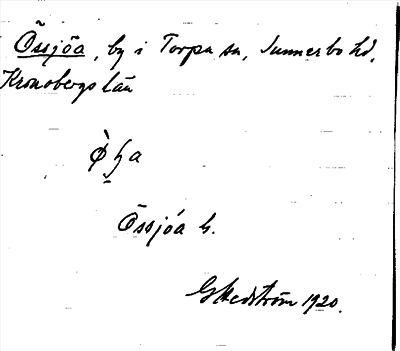 Össjöa, by i Torpa sn, Sunnerbo hd,
Kronobergs län
Össjöa h.
G Hedström 1920.